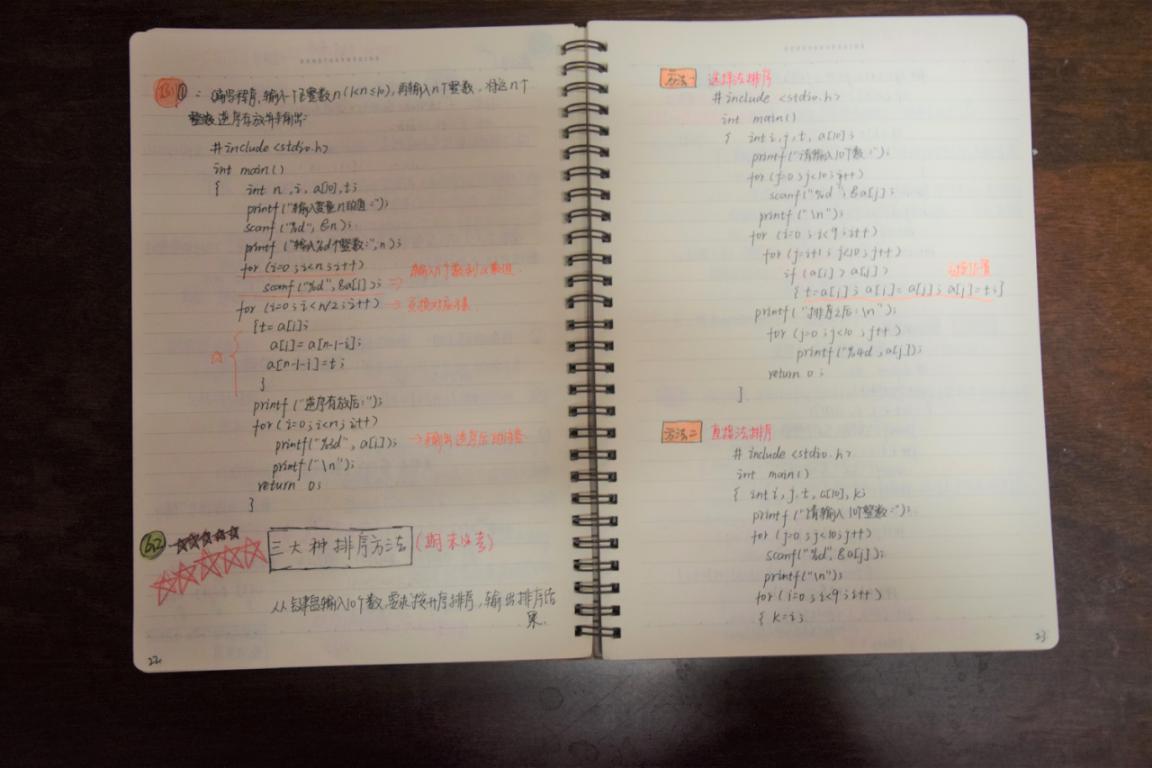 ①:编写程序,输入一个正整数n(1<n≤10),再输入n个整数,将这n个
整数逆序存放并输出:
#include <stdio.h>
int main()
{ int n,i,a[10],t;
printf("输入变量n的值:");
scanf("%d",&n);
printf("输入%d个整数:",n);
for (i=0;i<n;i++)
scanf("%d",&a[i]); => 输入n个数到数组
for (i=0;i<n/2;i++) → 互换对应值
{t=a[i];
a[i]=a[n-1-i];
a[n-1-i]=t;
}
printf("逆序存放后:");
for(i=0;i<n;i++)
printf("%5d",a[i]); →输出逆序后的值
printf("\n");
return 0;
}
62
三大种排序方法(期末必考)
从键盘输入10个数,要求按升序排序,输出排序结
果.
22
方法一 选择法排序
#include <stdio.h>
int main()
{ int i,j,t,a[10];
printf("请输入10个数:");
for (j=0;j<10;j++)
scanf("%d",&a[j];
printf("\n");
for (i=0;i<9;i++)
for (j=i+1;j<10;j++)
if (a[i]>a[j])
{ t=a[i]; a[i]=a[j]; a[j]=t;}
printf("排序之后:\n");
for (j=0;j<10;j++)
printf("%4d",a[j]);
return 0;
}
方法二 直接法排序
#include <stdio.h>
int main()
{ int i,j,t,a[10],k;
printf("请输入10个整数:");
for (j=0;j<10;j++)
scanf("%d",&a[j]);
printf("\n");
for (i=0;i<9;i++)
{ k=i;
23